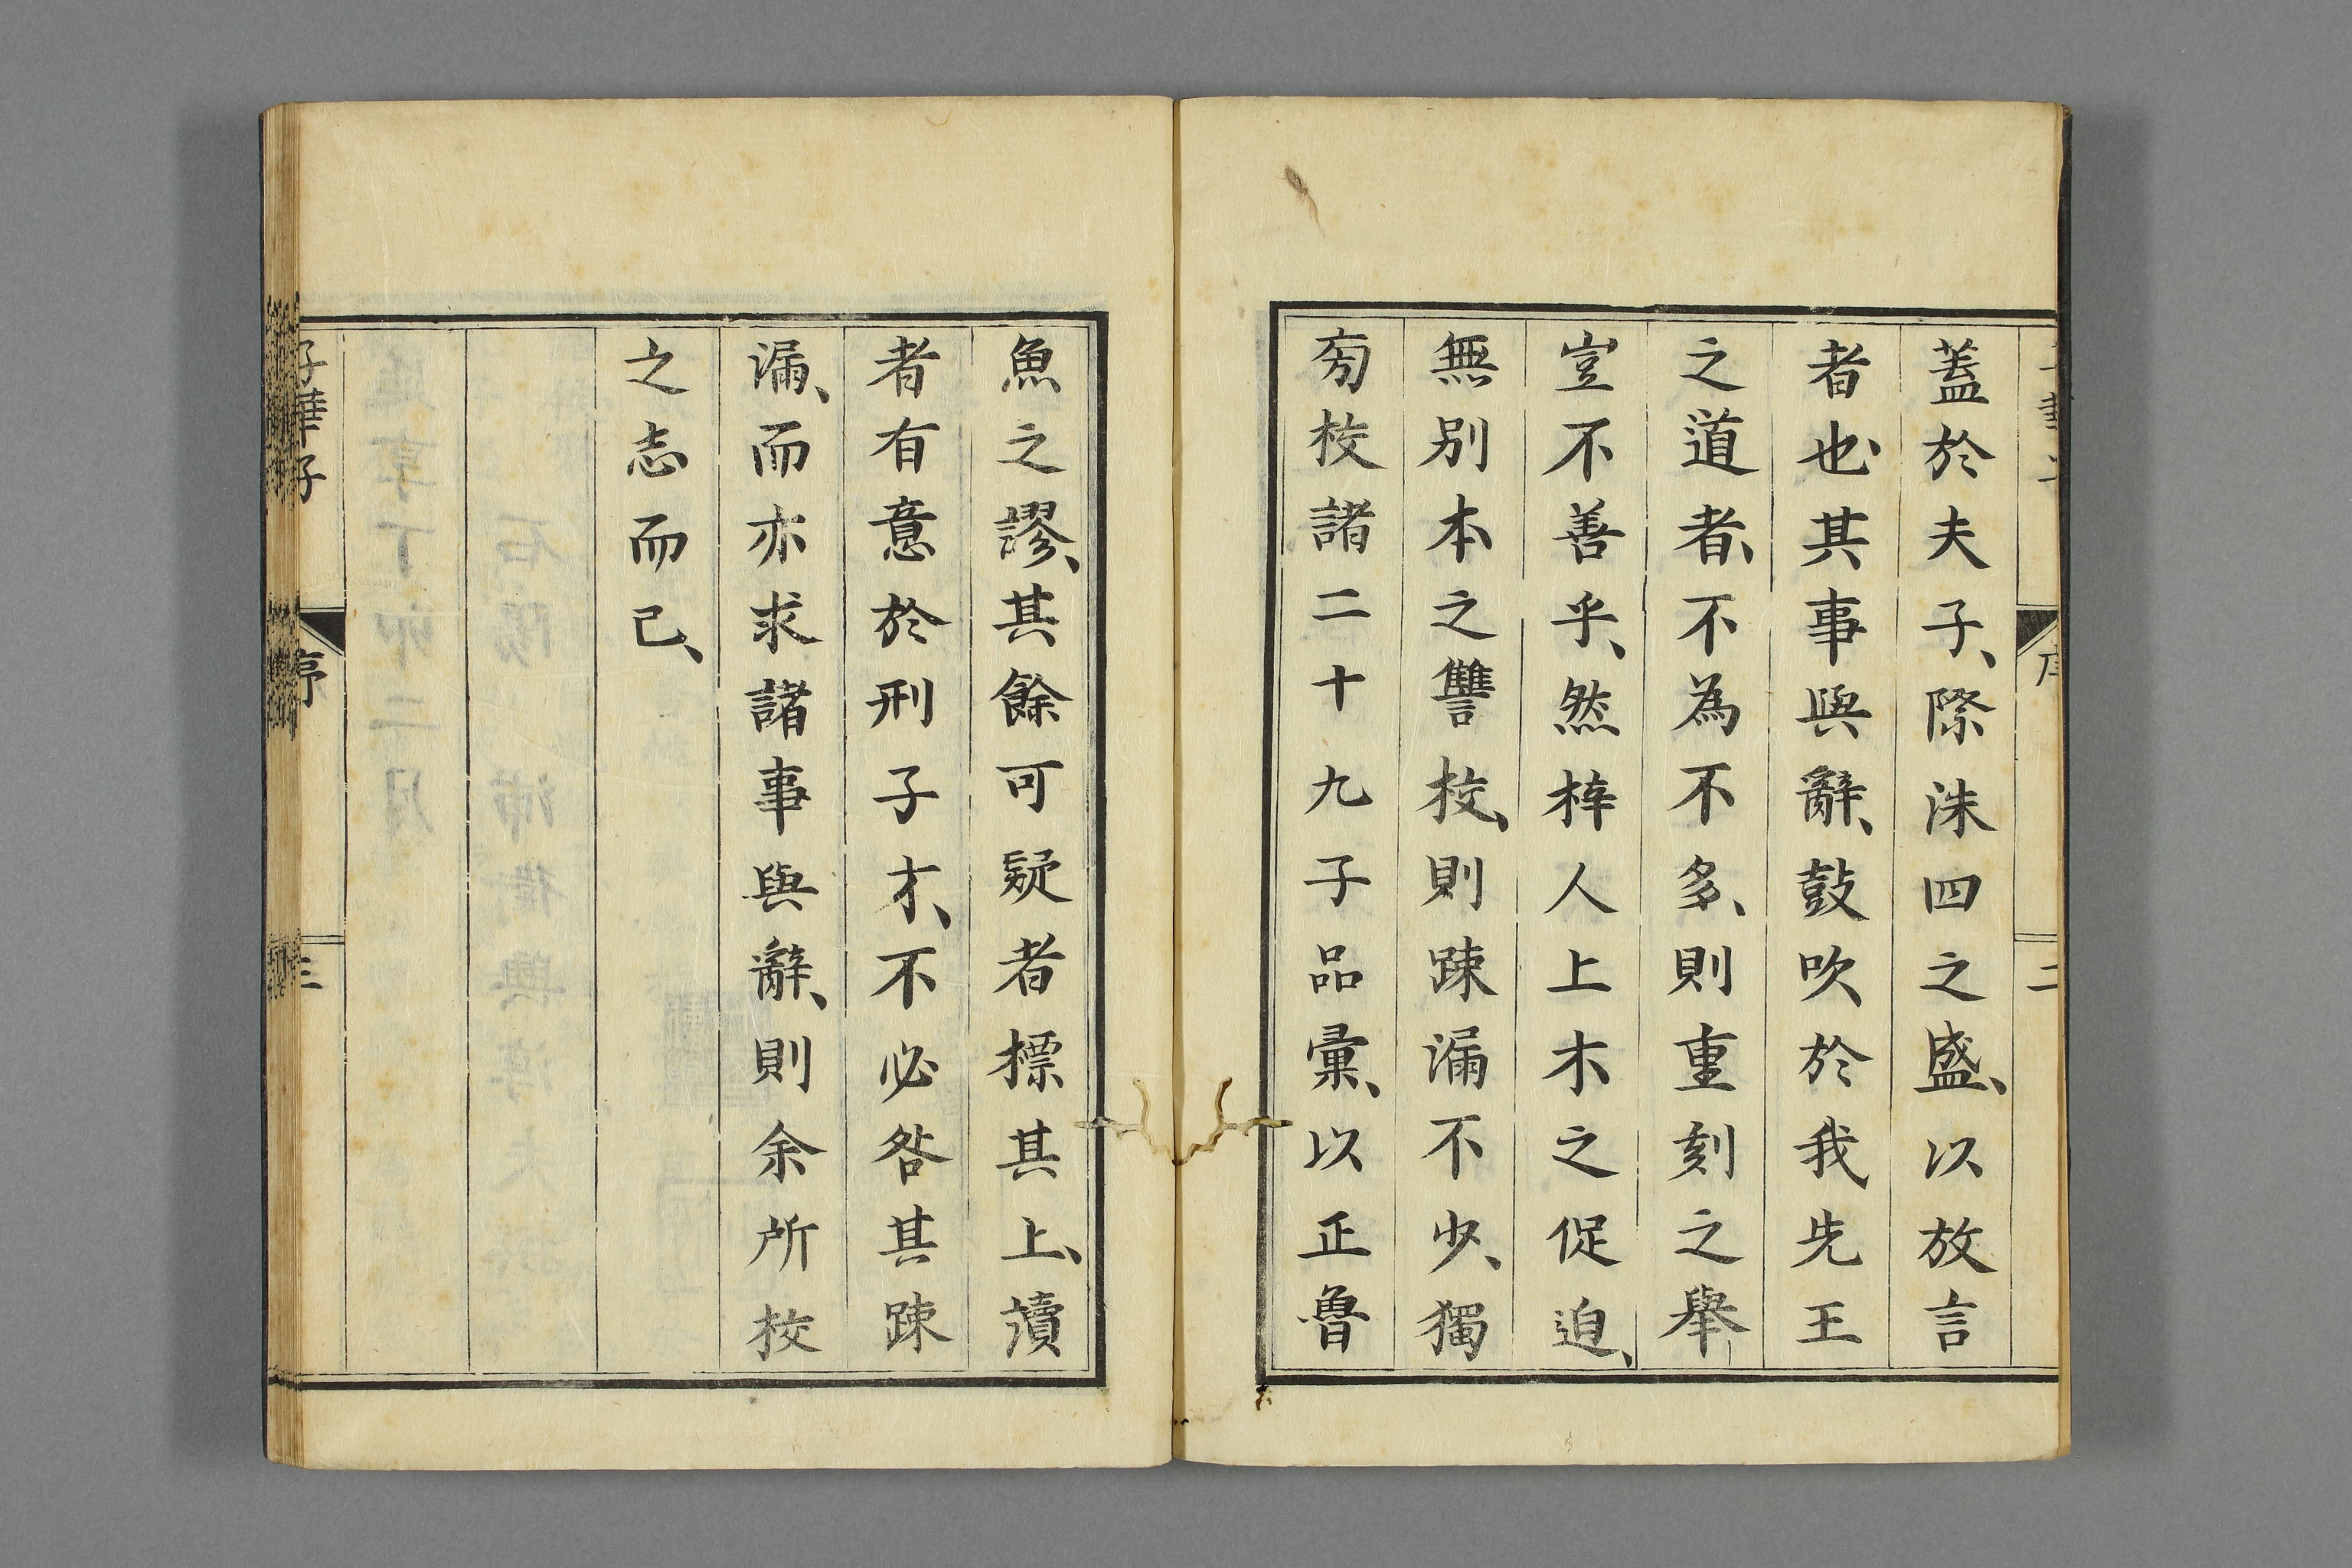 蓋於夫子、際洙四之盛、以放言
者也、其事與辭、鼓吹於我先王
之道者、不為不多、則重刻之舉
豈不善乎、然梓人上木之促迫、
無別本之讐校、則踈漏不少、獨
㫄校諸二十九子品彙、以正魯
魚之謬、其餘可疑者標其上、讀
者有意於刑子才、不必咎其踈
漏、而亦求諸事與辭、則余所校
之志而已、
子華子
序
三